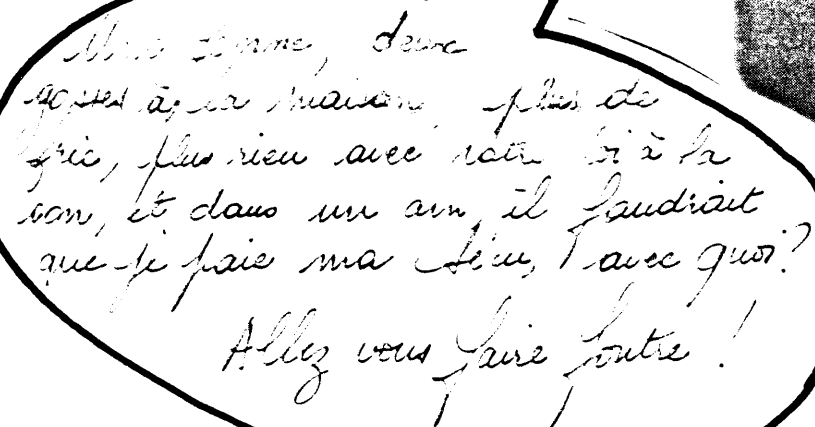 Une femme, deux
gosses à la maison, plus de
fric, plus rien avec votre loi à la
con, et dans un an, il faudrait
que je paie ma Sécu, avec quoi?
Allez vous faire foutre !